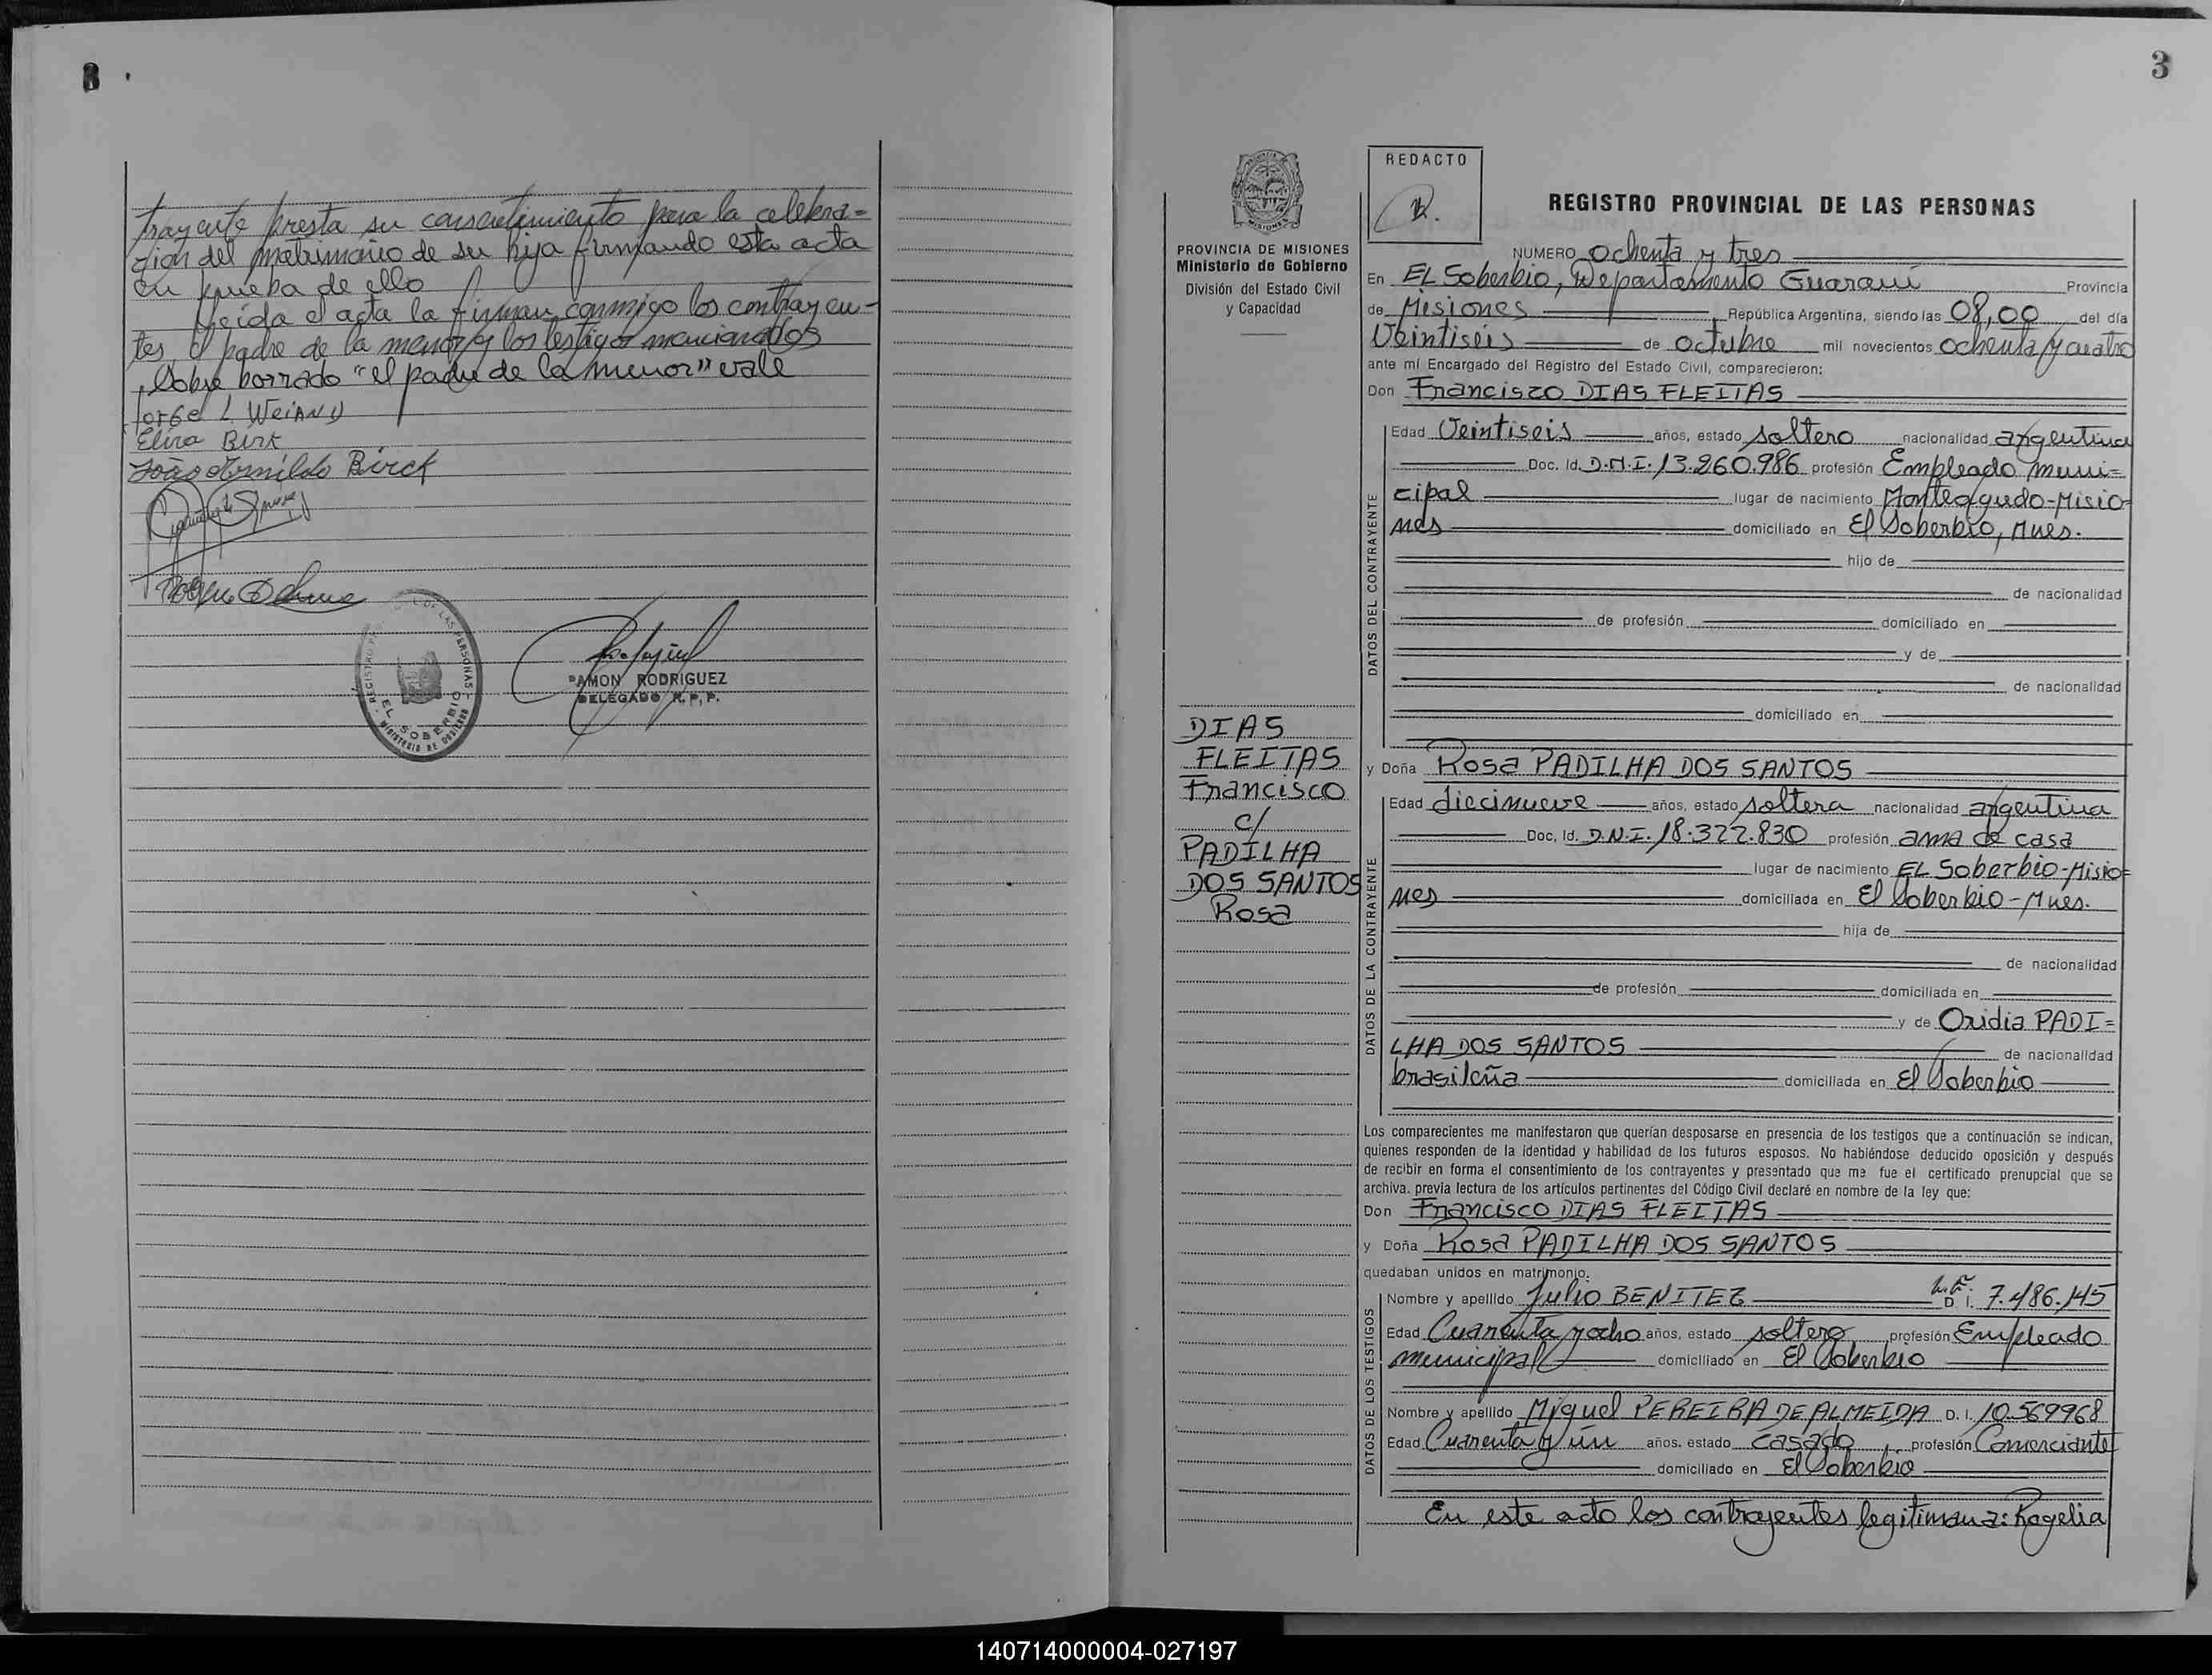 8
trayente presta su consentimiento para la celebra=
ción del matrimonio de su hija firmando esta acta
en prueba de ello
Leída el acta la firman conmigo los contrayen-
tes, el padre de la menor y los testigos mencionados
Sobre borrado "el padre de la menor" vale
Jorge L WeiAND
Elira Birk
João Arnildo Birck
REGISTRO LAS PERSONAS
EL SOBERBIO
RAMON RODRIGUEZ
DELEGADO R.P.P.
3
PROVINCIA DE MISIONES
Ministerio de Gobierno
División del Estado Civil
y Capacidad
DIAS
FLEITAS
Francisco
c/
PADILHA
DOS SANTOS
Rosa
REDACTO
R.
REGISTRO PROVINCIAL DE LAS PERSONAS
NUMERO Ochenta y tres
En EL Soberbio, Departamento Guaraní Provincia
de Misiones República Argentina, siendo las 08,00 del día
Veintiseis de octubre mil novecientos ochenta y cuatro
ante mí Encargado del Registro del Estado Civil, comparecieron:
Don Francisco DIAS FLEITAS
DATOS DEL CONTRAYENTE
Edad Veintiseis años, estado soltero nacionalidad argentina
Doc. Id. D.N.I. 13.260.986 profesión Empleado muni=
cipal lugar de nacimiento Monteagudo-Misio=
nes domiciliado en El Soberbio, Mnes.
hijo de
de nacionalidad
de profesión domiciliado en
y de
de nacionalidad
domiciliado en
y Doña Rosa PADILHA DOS SANTOS
DATOS DE LA CONTRAYENTE
Edad diecinueve años, estado soltera nacionalidad argentina
Doc. Id. D.N.I. 18.322.830 profesión ama de casa
lugar de nacimiento EL Soberbio-Misio=
nes domiciliada en El Soberbio-Mnes.
hija de
de nacionalidad
de profesión domiciliada en
y de Oridia PADI=
LHA DOS SANTOS de nacionalidad
brasileña domiciliada en El Soberbio
Los comparecientes me manifestaron que querían desposarse en presencia de los testigos que a continuación se indican,
quienes responden de la identidad y habilidad de los futuros esposos. No habiéndose deducido oposición y después
de recibir en forma el consentimiento de los contrayentes y presentado que me fue el certificado prenupcial que se
archiva, previa lectura de los artículos pertinentes del Código Civil declaré en nombre de la ley que:
Don Francisco DIAS FLEITAS
y Doña Rosa PADILHA DOS SANTOS
quedaban unidos en matrimonio.
DATOS DE LOS TESTIGOS
Nombre y apellido Julio BENITEZ L.E. D. I. 7.486.145
Edad Cuarenta y ocho años, estado soltero profesión Empleado
municipal domiciliado en El Soberbio
Nombre y apellido Miguel PEREIRA DE ALMEIDA D. I. 10.569968
Edad Cuarenta y un años, estado casado profesión Comerciante
domiciliado en El Soberbio
En este acto los contrayentes legitiman a: Rogelia
140714000004-027197